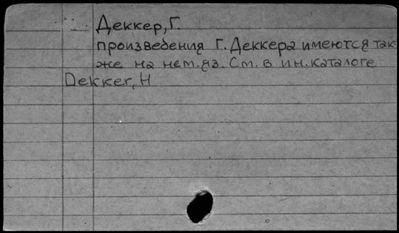 Деккер, Г.
произведения Г. Деккера имеются так
же на нем. яз. См. в ин. каталоге
Dekker, H